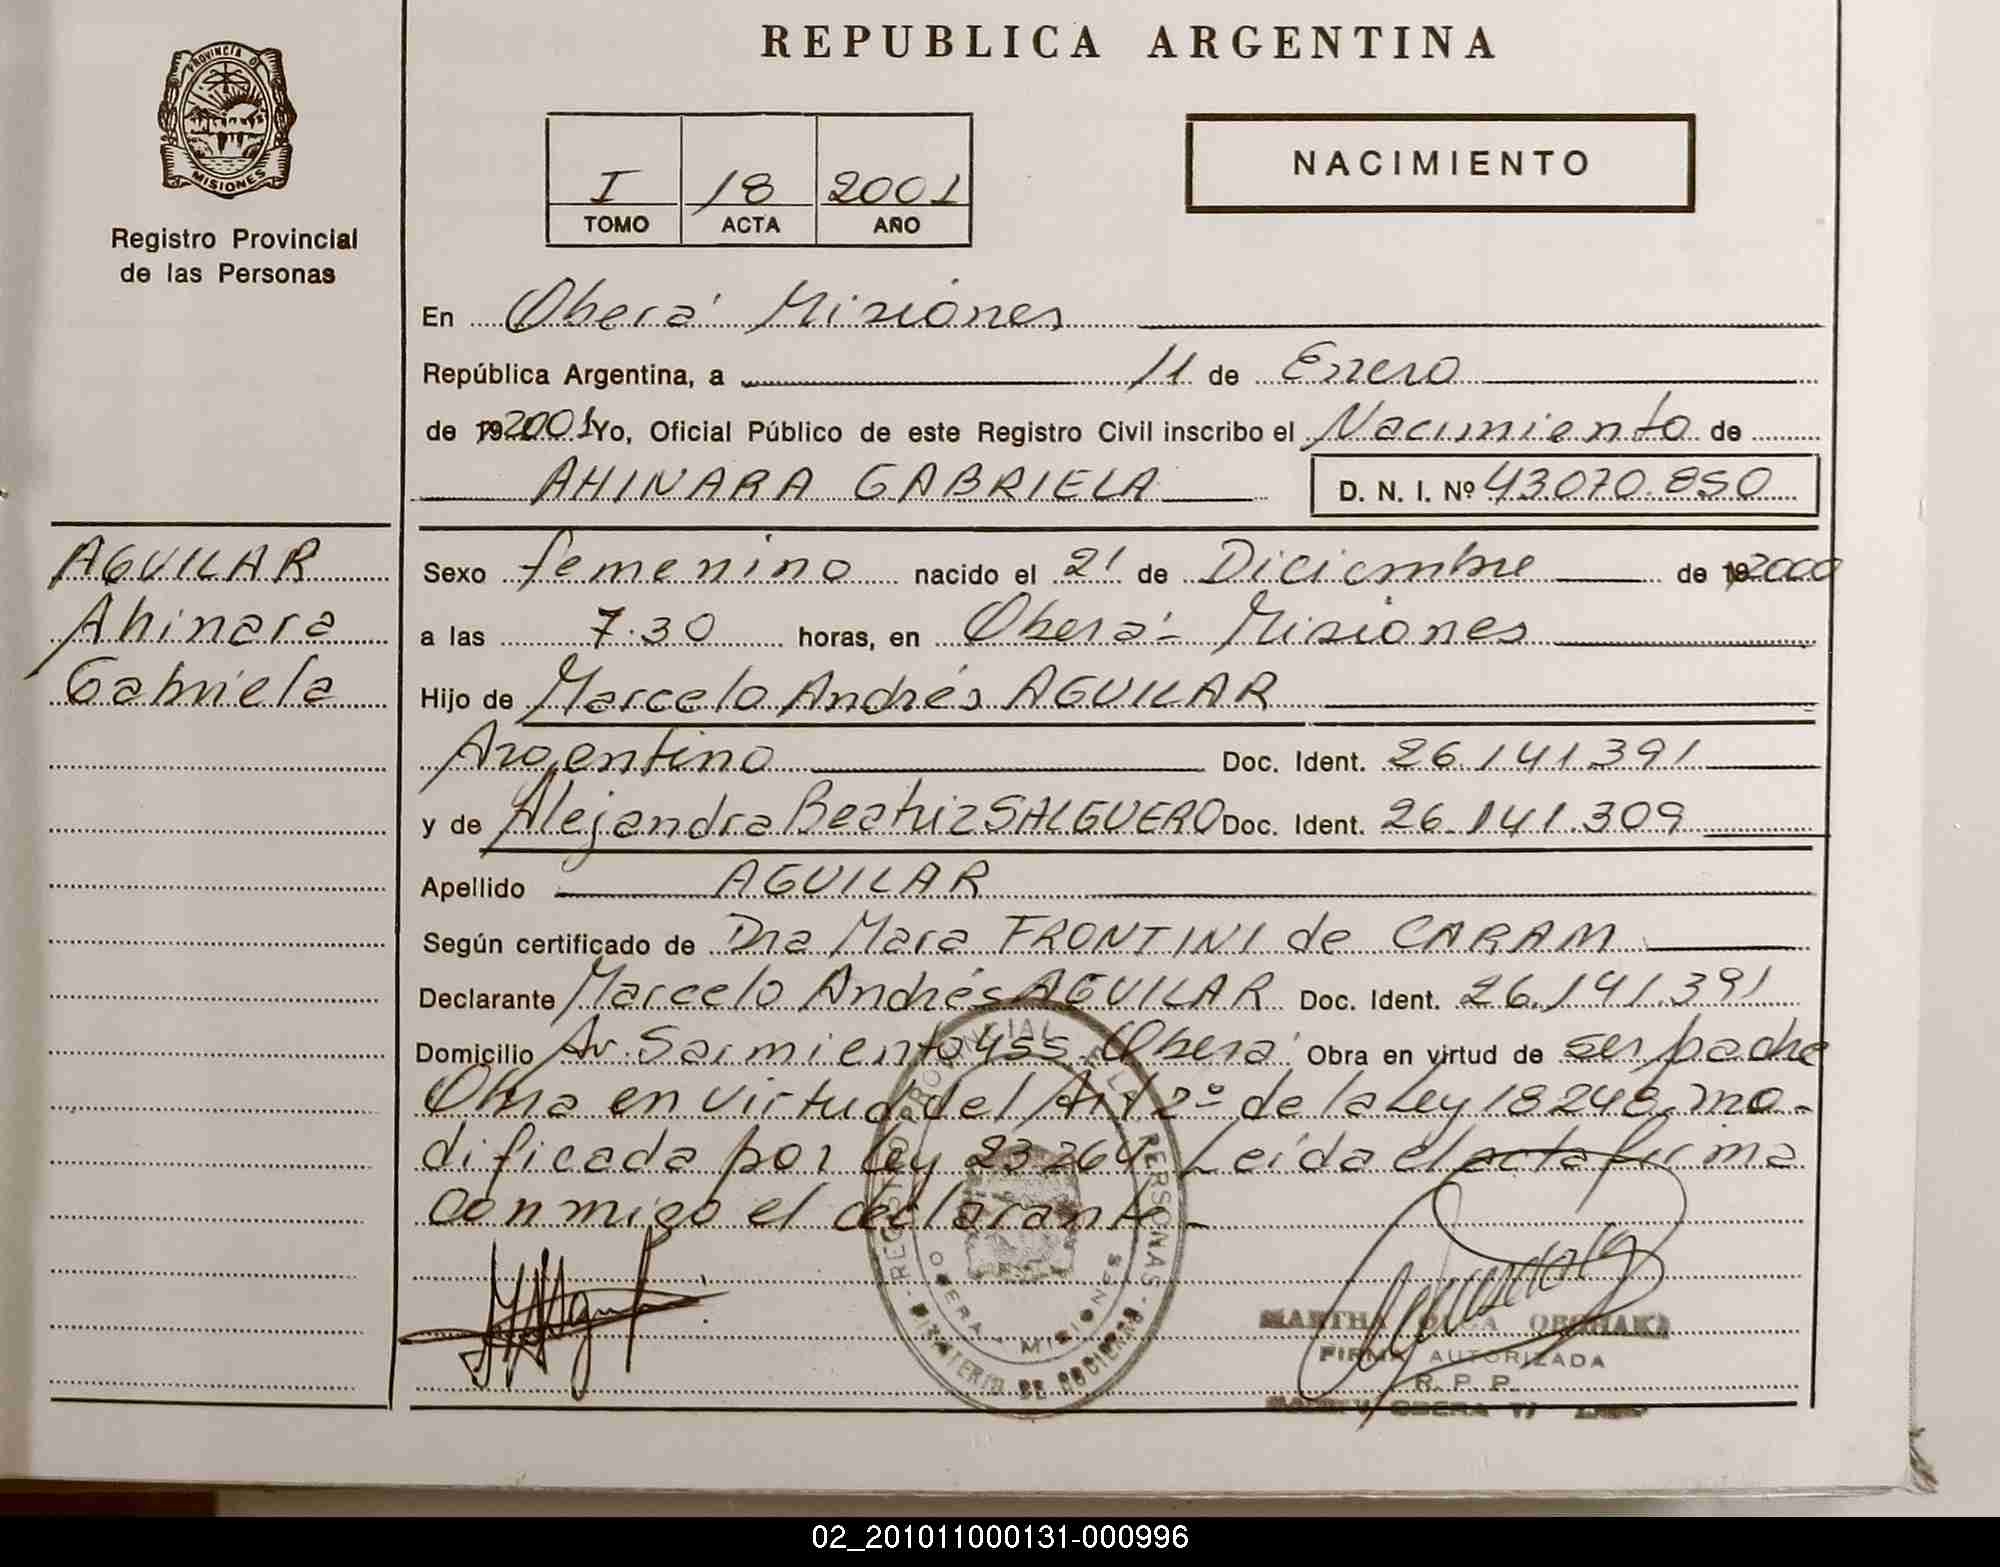 REPUBLICA ARGENTINA
PROVINCIA DE
MISIONES
Registro Provincial
de las Personas
I 18 2001
TOMO ACTA AÑO
NACIMIENTO
En Oberá Misiones
República Argentina, a 11 de Enero
de 19 2001 Yo, Oficial Público de este Registro Civil inscribo el Nacimiento de
AHINARA GABRIELA D. N. I. Nº 43.070.850
AGUILAR
Ahinara
Gabriela
Sexo femenino nacido el 21 de Diciembre de 19 2000
a las 7.30 horas, en Oberá - Misiones
Hijo de Marcelo Andrés AGUILAR
Argentino Doc. Ident. 26.141.391
y de Alejandra Beatriz SALGUERO Doc. Ident. 26.141.309
Apellido AGUILAR
Según certificado de Dra Mara FRONTINI de CARAM
Declarante Marcelo Andrés AGUILAR Doc. Ident. 26.141.391
Domicilio Av. Sarmiento 455 Oberá Obra en virtud de ser padre
Obra en virtud del Art 2º de la Ley 18248, mo-
dificada por ley 23264. Leída el acta firma
conmigo el declarante.-
REGISTRO PROVINCIAL DE LAS PERSONAS
OBERA - MISIONES
MINISTERIO DE GOBIERNO
MARTHA OLGA
FIRMA AUTORIZADA
R. P. P.
OBERA
02_201011000131-000996